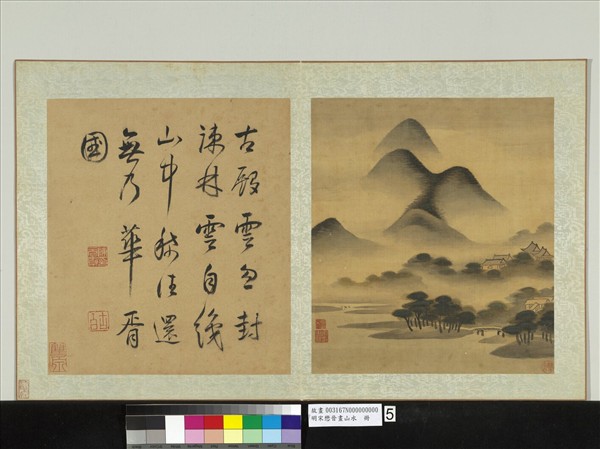 古殿雲忽封
疎林雲自織
山中稀往還
無乃華胥
國
故畫 003167N000000000
明宋懋晉畫山水 冊
5